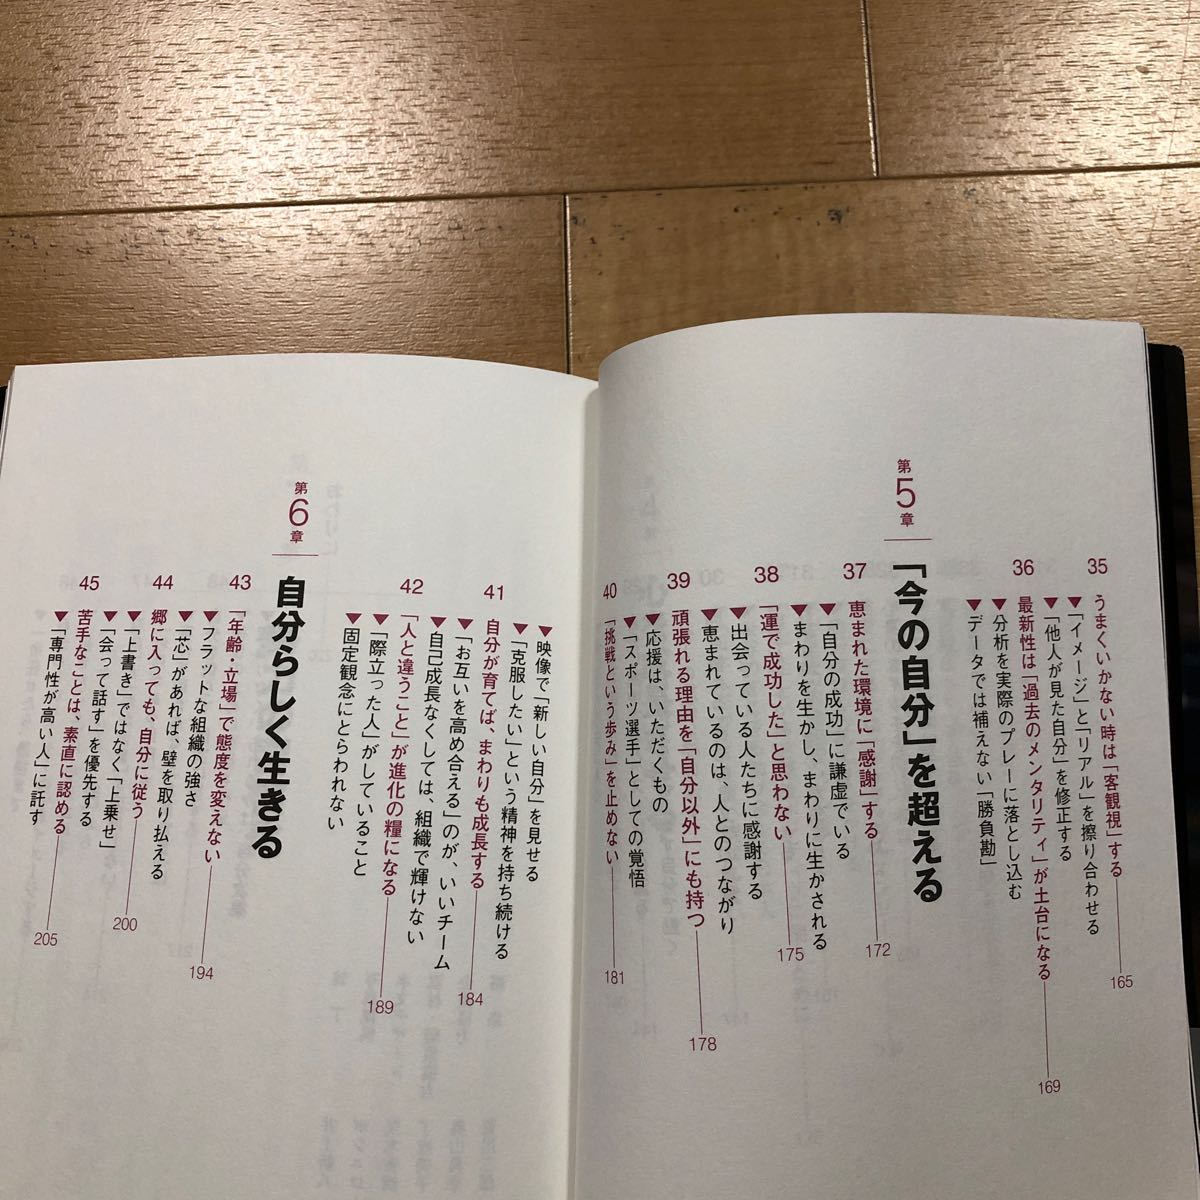 第5章
「今の自分」を超える
35 うまくいかない時は「客観視」する 165
▼「イメージ」と「リアル」を擦り合わせる
▼「他人が見た自分」を修正する
36 最新性は「過去のメンタリティ」が土台になる 169
▼分析を実際のプレーに落とし込む
▼データでは補えない「勝負勘」
37 恵まれた環境に「感謝」する 172
▼「自分の成功」に謙虚でいる
▼まわりを生かし、まわりに生かされる
38 「運で成功した」と思わない 175
▼出会っている人たちに感謝する
▼恵まれているのは、人とのつながり
39 頑張れる理由を「自分以外」にも持つ 178
▼応援は、いただくもの
▼「スポーツ選手」としての覚悟
40 「挑戦という歩み」を止めない 181
▼映像で「新しい自分」を見せる
▼「克服したい」という精神を持ち続ける
41 自分が育てば、まわりも成長する 184
▼「お互いを高め合える」のが、いいチーム
▼自己成長なくしては、組織で輝けない
42 「人と違うこと」が進化の糧になる 189
▼「際立った人」がしていること
▼固定観念にとらわれない
第6章
自分らしく生きる
43 「年齢・立場」で態度を変えない 194
▼フラットな組織の強さ
▼「芯」があれば、壁を取り払える
44 郷に入っても、自分に従う 200
▼「上書き」ではなく「上乗せ」
▼「会って話す」を優先する
45 苦手なことは、素直に認める 205
▼「専門性が高い人」に託す